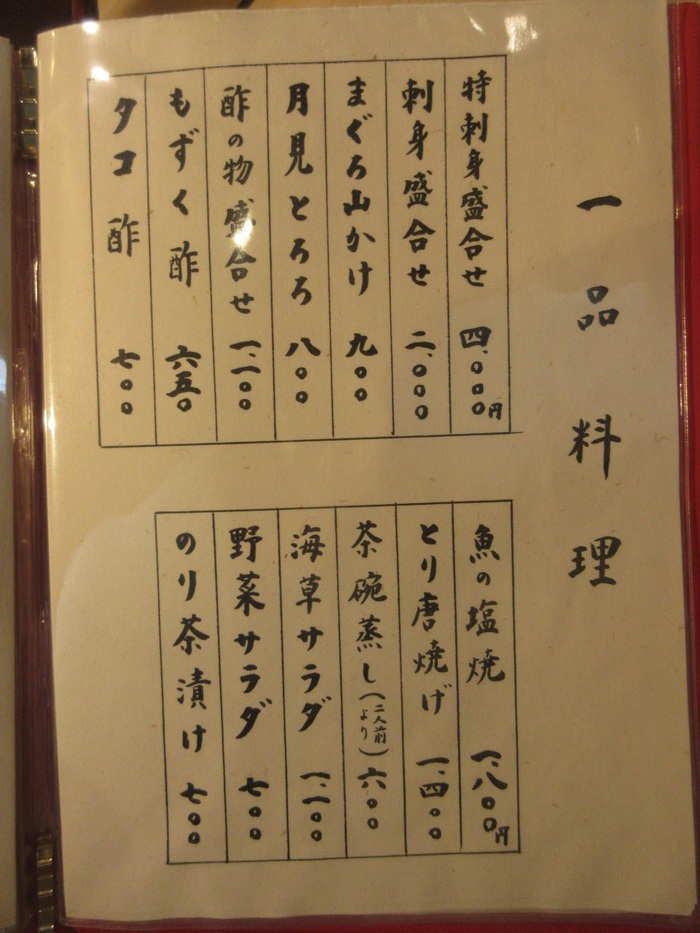 一品料理
特刺身盛合せ 四、〇〇〇円
刺身盛合せ 二、〇〇〇
まぐろ山かけ 九〇〇
月見とろろ 八〇〇
酢の物盛合せ 一、一〇〇
もずく酢 六五〇
タコ酢 七〇〇
魚の塩焼 一、八〇〇円
とり唐焼げ 一、四〇〇
茶碗蒸し(二人前より) 六〇〇
海草サラダ 一、一〇〇
野菜サラダ 七〇〇
のり茶漬け 七〇〇